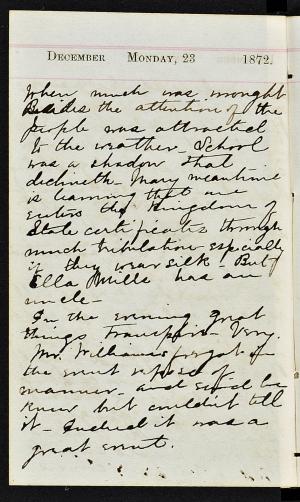 December Monday, 23 1872.
When much was wrought
Besides the attention of the
people was attracted
to the weather - School
was a shadow that
declineth - Mary meantime
is learning that one
enters the Kingdom of
State certificates through
much tribulation especially
if they wear silk - But
Ella Mills has an
uncle -
In the evening great
things transpire - Very.
Mr. Williams forgot
the
manner - and said he
knew but couldn't tell
it - Indeed it was a
great